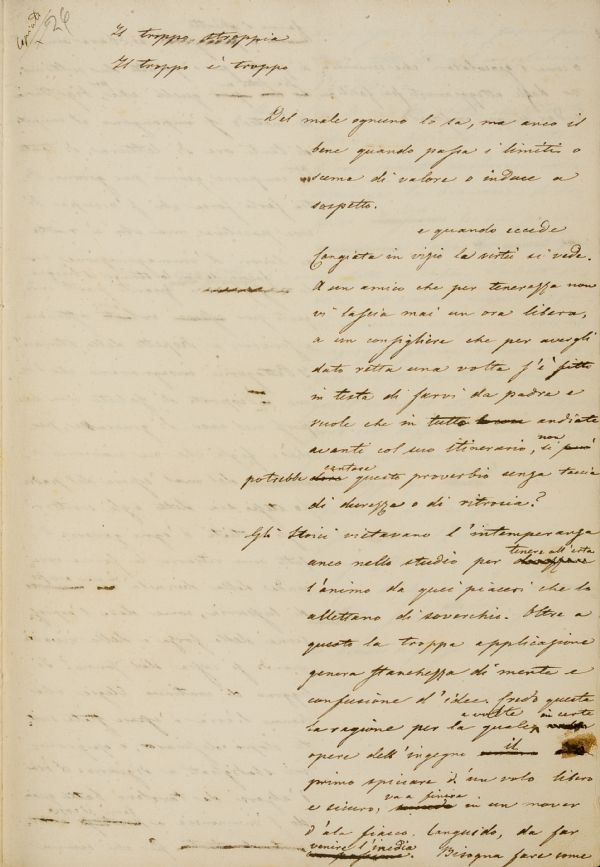 Copiato 126
Il troppo stroppia
Il troppo è troppo
Del male ognuno lo sa, ma anco il
bene quando passa i limiti o
scema di valore o induce a
sospetto.
e quando eccede
Cangiata in vizio la virtù si vede.
A un amico che per tenerezza non
vi lascia mai un ora libera,
a un consigliere che per avergli
dato retta una volta s'è fitto
in testa di farvi da padre e
vuole che in tutto andiate
avanti col suo itinerario, non si può
potrebbe cantare questo proverbio senza taccia
di durezza o di ritrosia?
Gli Stoici vietavano l'intemperanza
anco nello studio per tenere all'erta
l'animo da quei piaceri che lo
allettano di soverchio. Oltre a
questo la troppa applicazione
genera stanchezza di mente e
confusione d'idee. Credo questa
la ragione per la quale a volte in certe
opere dell'ingegno il
primo spiccare d'un volo libero
e sicuro, va a finire in un mover
d'ala fiacco, languido, da far
venire l'inedia. Bisogna fare come